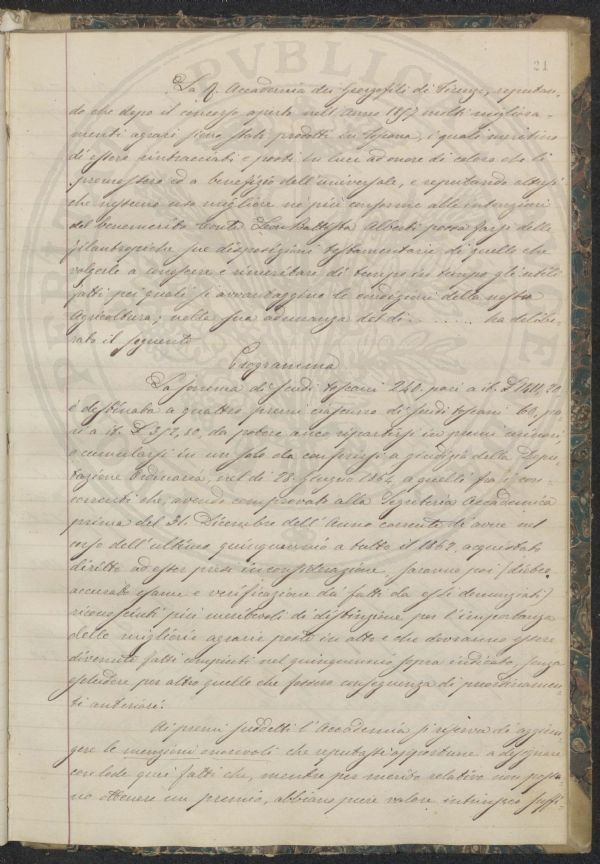 21
La R. Accademia dei Georgofili di Firenze, reputan-
do che dopo il concorso aperto nell'Anno 1857 molti migliora-
menti agrari sieno stati prodotti in Toscana, i quali meritino
di essere rintracciati e posti in luce ad onore di coloro che li
promossero ed a benefizio dell'universale, e reputando altresì
che nessuno uso migliore nè più conforme alle intenzioni
del benemerito Conte Leon Battista Alberti possa farsi delle
filantropiche sue disposizioni testamentarie di quello che
volgerle a conoscere e rimeritare di tempo in tempo gli utili
fatti pei quali si avvantaggino le condizioni della nostra
Agricoltura; nella sua adunanza del dì . . . . . . ha delibe-
rato il seguente
Programma
La somma di scudi toscani 240, pari a it. £ 1411,20,
è destinata a quattro premi ciascuno di scudi toscani 60, pa-
ri a it. £ 352,80, da potere anco ripartirsi in premi minori
o cumularsi in un solo da conferirsi a giudizio della Depu-
tazione Ordinaria, nel dì 28 Giugno 1864, a quelli fra i con-
correnti che, avendo comprovato alla Segreteria Accademica
prima del 31 Dicembre dell'Anno corrente di avere nel
corso dell'ultimo quinquennio a tutto il 1862, acquistato
diritto ad esser presi in considerazione, saranno poi (dietro
accurato esame e verificazione dei fatti da essi denunziati)
riconosciuti più meritevoli di distinzione, per l'importanza
delle migliorie agrarie poste in atto e che dovranno essere
divenute fatti compiuti nel quinquennio sopra indicato, senza
escludere per altro quelle che fossero conseguenza di preordinamen-
ti anteriori.
Ai premi suddetti l'Accademia si riserva di aggiun-
gere le menzioni onorevoli che reputasse opportune a designare
con lode quei fatti che, mentre per merito relativo non posso-
no ottenere un premio, abbiano pure valore intrinseco suffi-